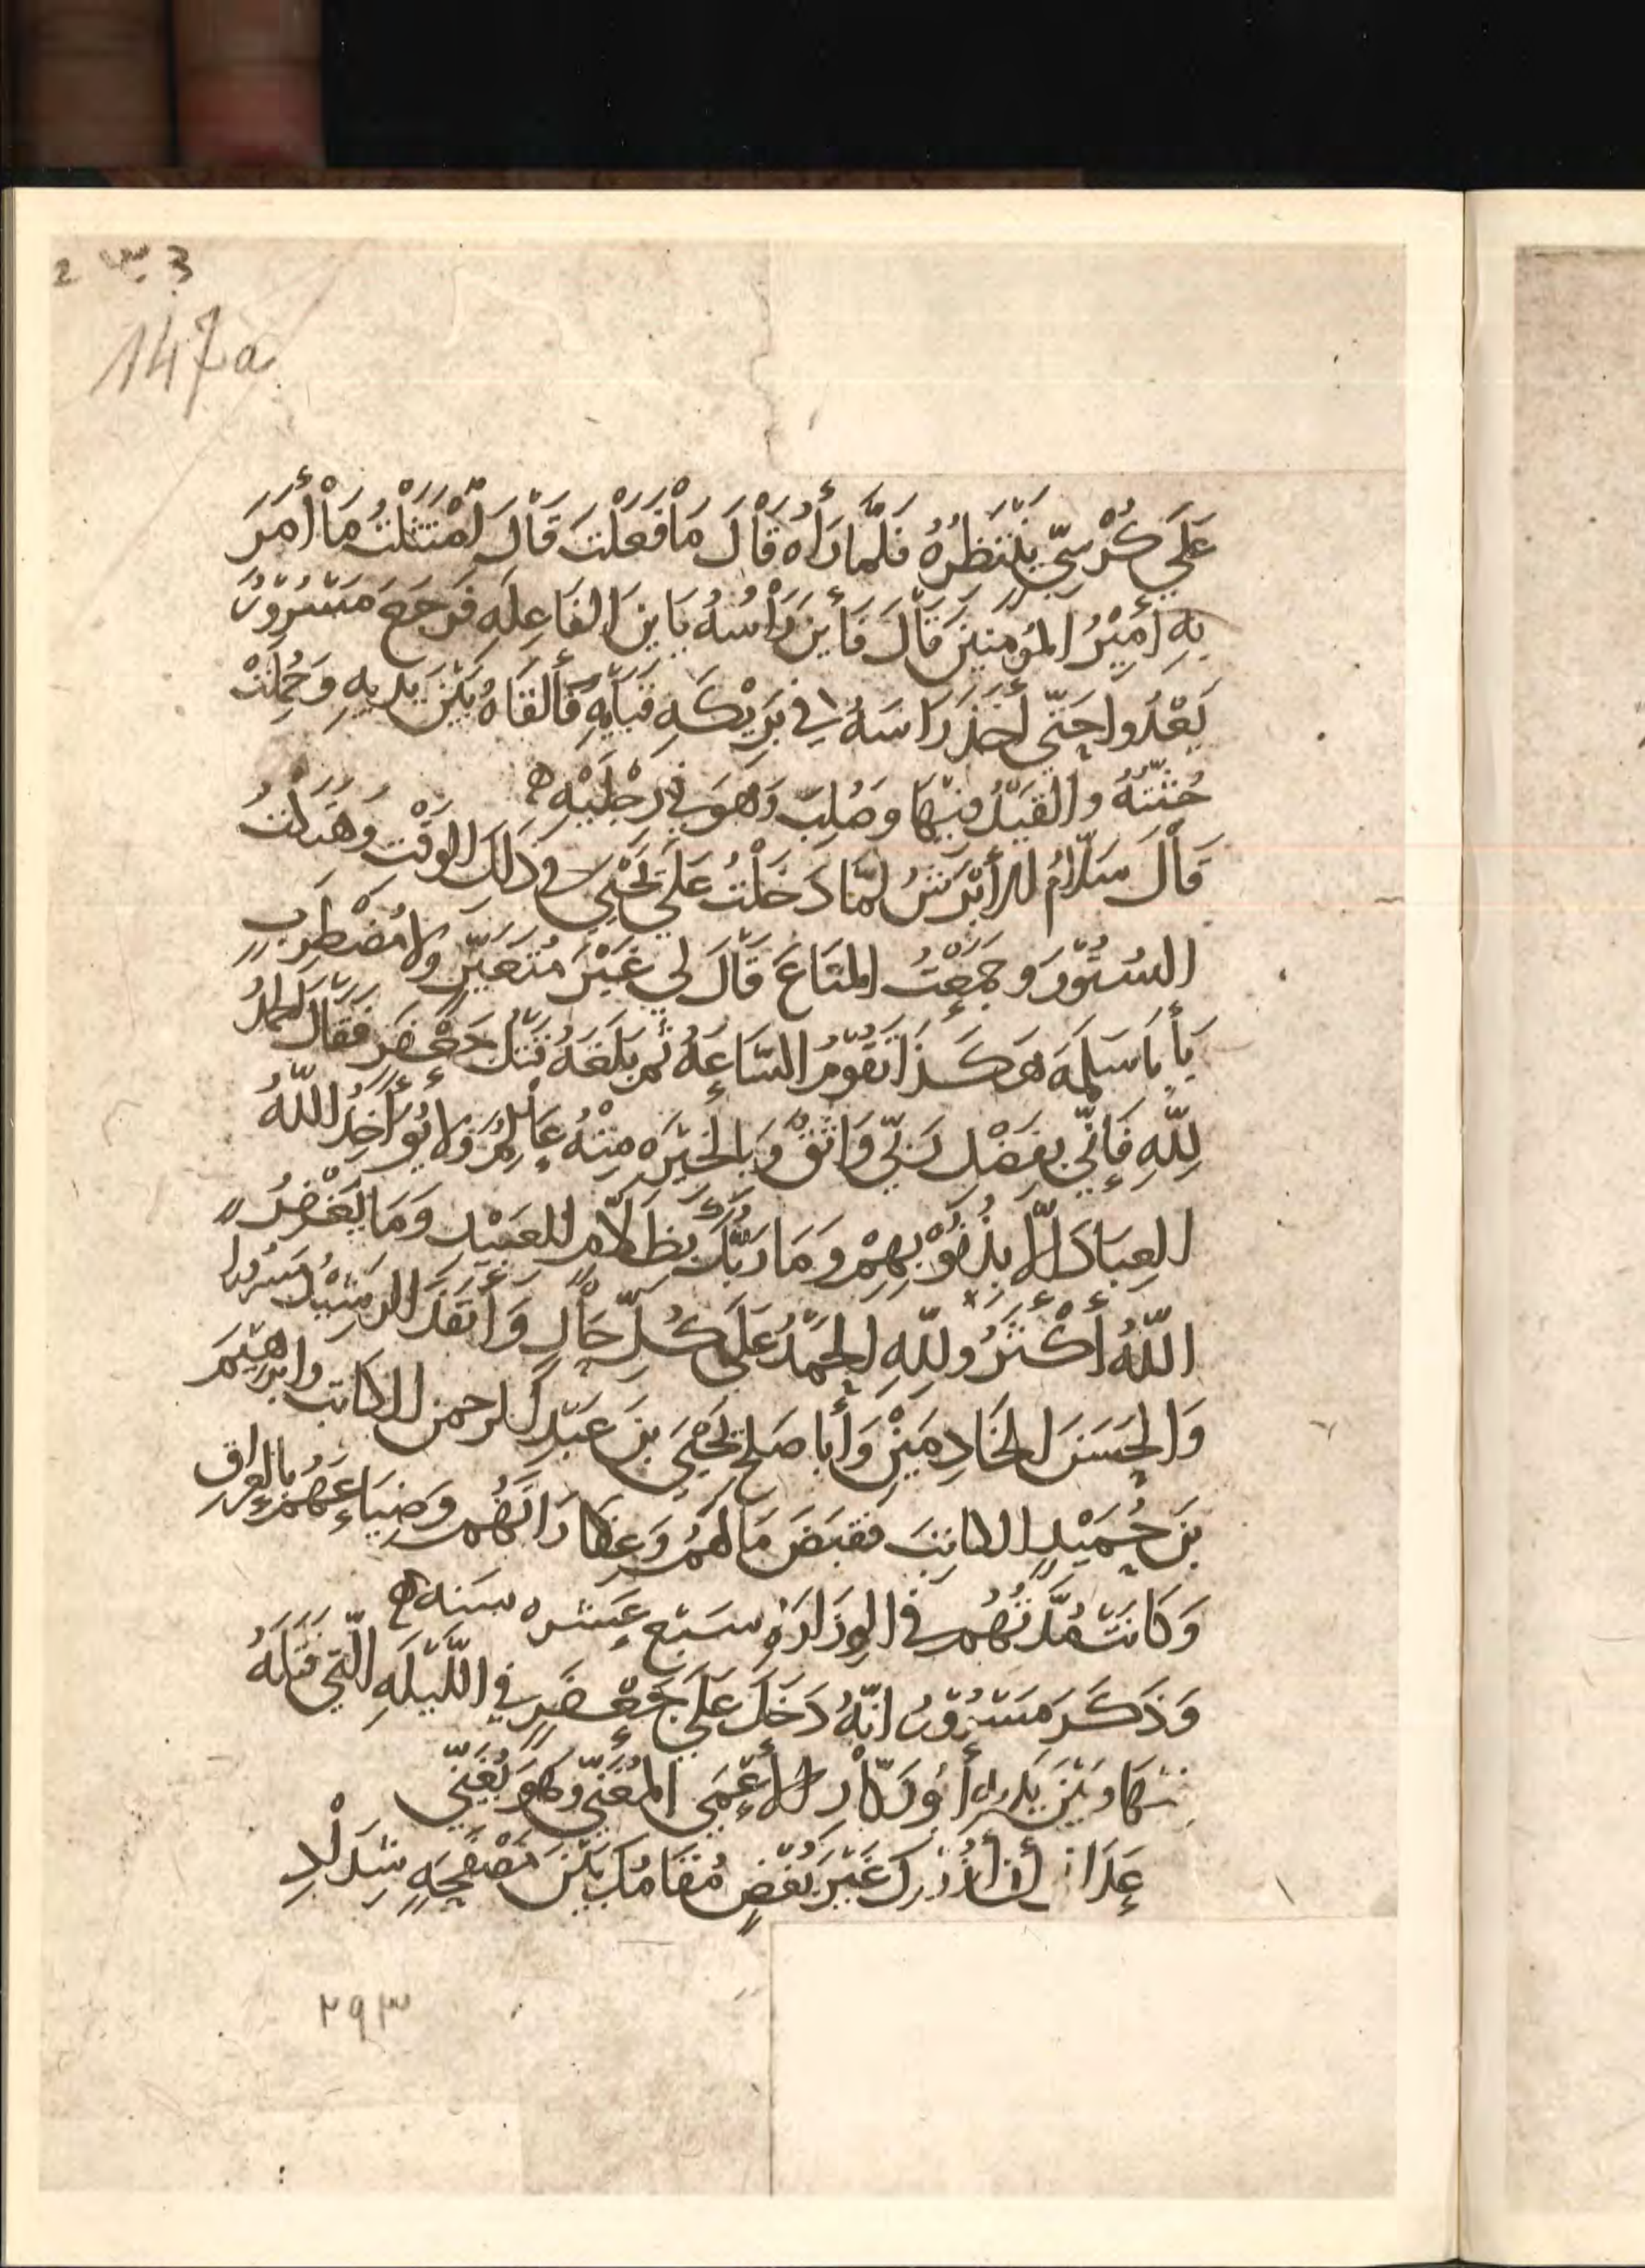 2 س 3
147a
عَلَي كُرْسِيّ يَنْتَظِرُهُ فَلَمّا رَأَاهُ قَالَ مَا فَعَلْتَ قَالَ امْتَثَلْتُ مَا أَمَرَ
بِهِ أَمِيْرُ المُؤمِنِيْنَ قَالَ فَأَيْنَ رَأْسُهُ يَابْنَ الفَاعِلَهِ فَرَجَعَ مَسْرُوْرٌ
يَعْدُوا حَتّي أَخَذَ رَاسَهُ فِي بَرَيْكَهِ قَبَايِهِ فَأَلقَاهُ بَيْنَ يَدَيهِ وَحُمِلَتْ
جُثّتُهُ وَالقَيْدُ فِيْهَا وَصُلِبَ وَهوَ فِي رِجْلَيْهِ ه
قَالَ سَلّامُ الأَبْرَشُ لَمّا دَخَلْتُ عَلَي يَحْيَي فِي ذَلِكَ الوَقْتِ وَهَتَكْتُ
السُتُوْرَ وَجَمَعْتُ المَتَاعَ قَالَ لِي غَيْرَ مُتَغَيّرٍ وَلا مُضْطَرِبٍ
يَأَبَا سَلمَهَ هَكَذَا تَقُوْمُ السّاعَهُ ثُمّ بَلَغَهُ قَتْلُ جَعْفَرٍ فَقَالَ الحَمْدُ
لِلّهِ فَإِنّي بِفَضْلِ رَبّي وَاثِقٌ وَبِالخِيْرَهِ مِنْهُ عَالِمٌ وَلا يُؤَاخِذُ اللّهُ
العِبَادَ إلّا بِذُنُوْبِهِمْ وَمَا رَبُّكَ بِظَلّامٍ لِلعَبِيْدِ وَمَا يَغْفِرُ
اللّهُ أَكْثَرُ وَلِلّهِ الحَمْدُ عَلَى كُلّ حَالٍ وَأَنفَذَ الرشِيْدُ مَسْرُورا
وَالحَسَنَ الخَادِمَيْنِ وَأَبَا صَلحٍ يَحْيَي بنَ عَبْدِ الرحمن الكاتب وابرهيْمَ
بنَ حُمَيْدٍ الكاتِبَ فَقَبَضَ مَالَهمْ وَعَقَارَاتَهُم وَضِيَاعَهُمْ بِالعِرَاقِ
وَكَانَتْ مُدَّتُهُم فِي الوِزَارَهِ سَبْعَ عَشْره سَنه ه
وَذَكَرَ مَسْرُوْرٌ انّهُ دَخَلَ عَلَي جَعْفَرٍ فِي اللّيْلَهِ الّتِي قَتَلَهُ
فِيْهَا وَبَيْنَ يَدَيهِ أَبُو زَكّارٍ الأَعْمَي المُغَنّي وَهوَ يُغَنّي
عَدَانِي أن أَزُوْرَكَ غَيْرَ بُغْضٍ مُقَامُكَ بَيْنَ مُصْفَحَهٍ شِدَادِ
٢٩٣